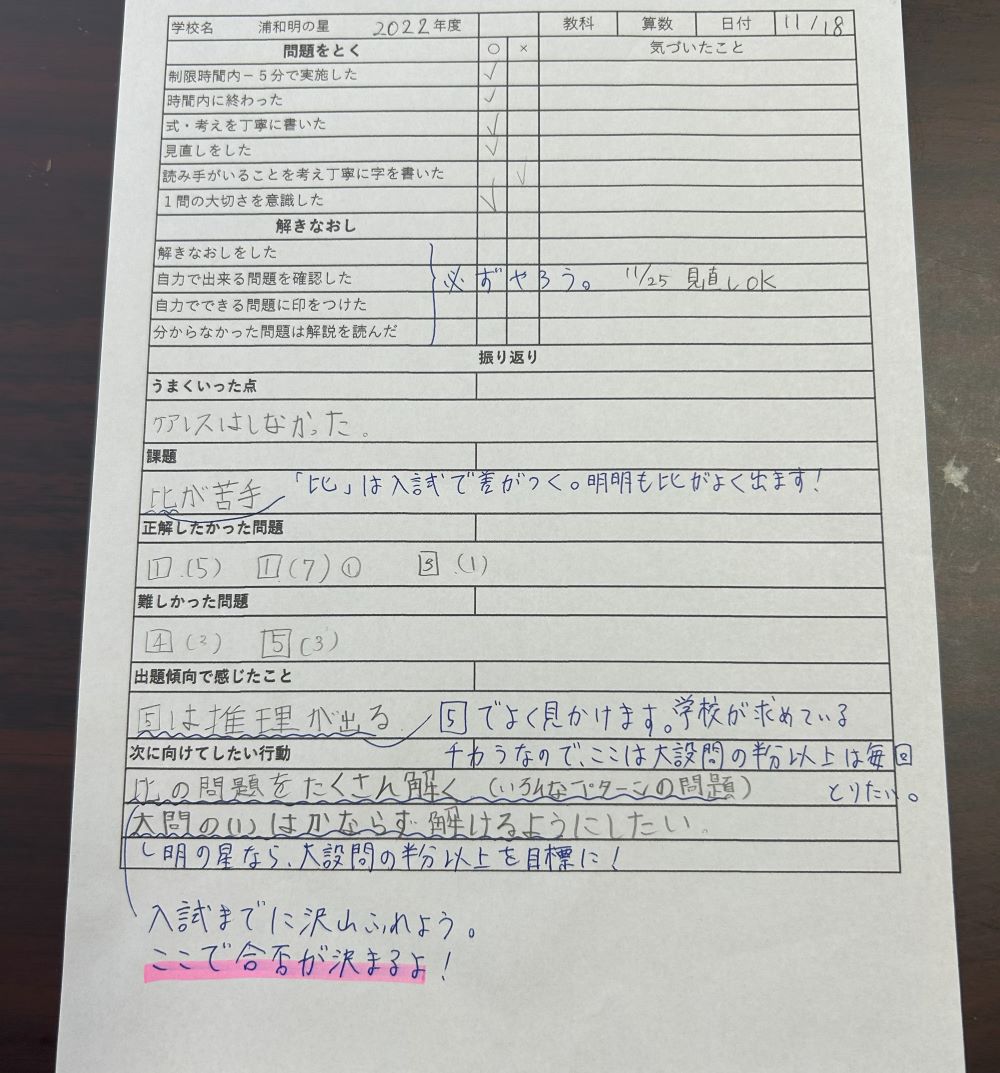 学校名 浦和明の星 2022年度 教科 算数 日付 11/18
問題をとく ○ × 気づいたこと
制限時間内－5分で実施した ✓
時間内に終わった ✓
式・考えを丁寧に書いた ✓
見直しをした ✓
読み手がいることを考え丁寧に字を書いた ✓
1問の大切さを意識した ✓
解きなおし
解きなおしをした
自力で出来る問題を確認した 必ずやろう。 11/25 見直しOK
自力でできる問題に印をつけた
分からなかった問題は解説を読んだ
振り返り
うまくいった点
ケアレスはしなかった。
課題
比が苦手 「比」は入試で差がつく。明明も比がよく出ます!
正解したかった問題
1.(5) 1(7)① 3.(1)
難しかった問題
4(2) 5(3)
出題傾向で感じたこと
5は推理が出る 5でよく見かけます。学校が求めている
次に向けてしたい行動 チカラなので、ここは大設問の半分以上は毎回
比の問題をたくさん解く(いろんなパターンの問題) とりたい。
大問の(1)はかならず解けるようにしたい。
明の星なら、大設問の半分以上を目標に!
入試までに沢山ふれよう。
ここで合否が決まるよ!